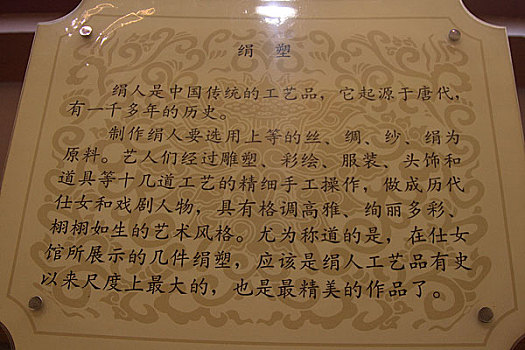 绢 塑
绢人是中国传统的工艺品，它起源于唐代，
有一千多年的历史。
制作绢人要选用上等的丝、绸、纱、绢为
原料。艺人们经过雕塑、彩绘、服装、头饰和
道具等十几道工艺的精细手工操作，做成历代
仕女和戏剧人物，具有格调高雅、绚丽多彩、
栩栩如生的艺术风格。尤为称道的是，在仕女
馆所展示的几件绢塑，应该是绢人工艺品有史
以来尺度上最大的，也是最精美的作品了。